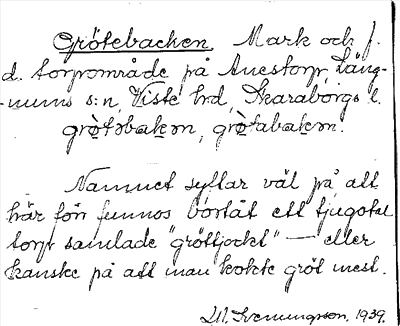 Grötebacken. Mark och f.
d. torpområde på Anestorp, Läng-
-nums s:n, Viste hrd, Skaraborgs l.
grö̀təbakən, grö̀tabakən.
Namnet syftar väl på att
här förr funnos bortåt ett tjugotal
torp samlade "gröttjockt" — eller
kanske på att man kokte gröt mest.
Svenungson, 1939.